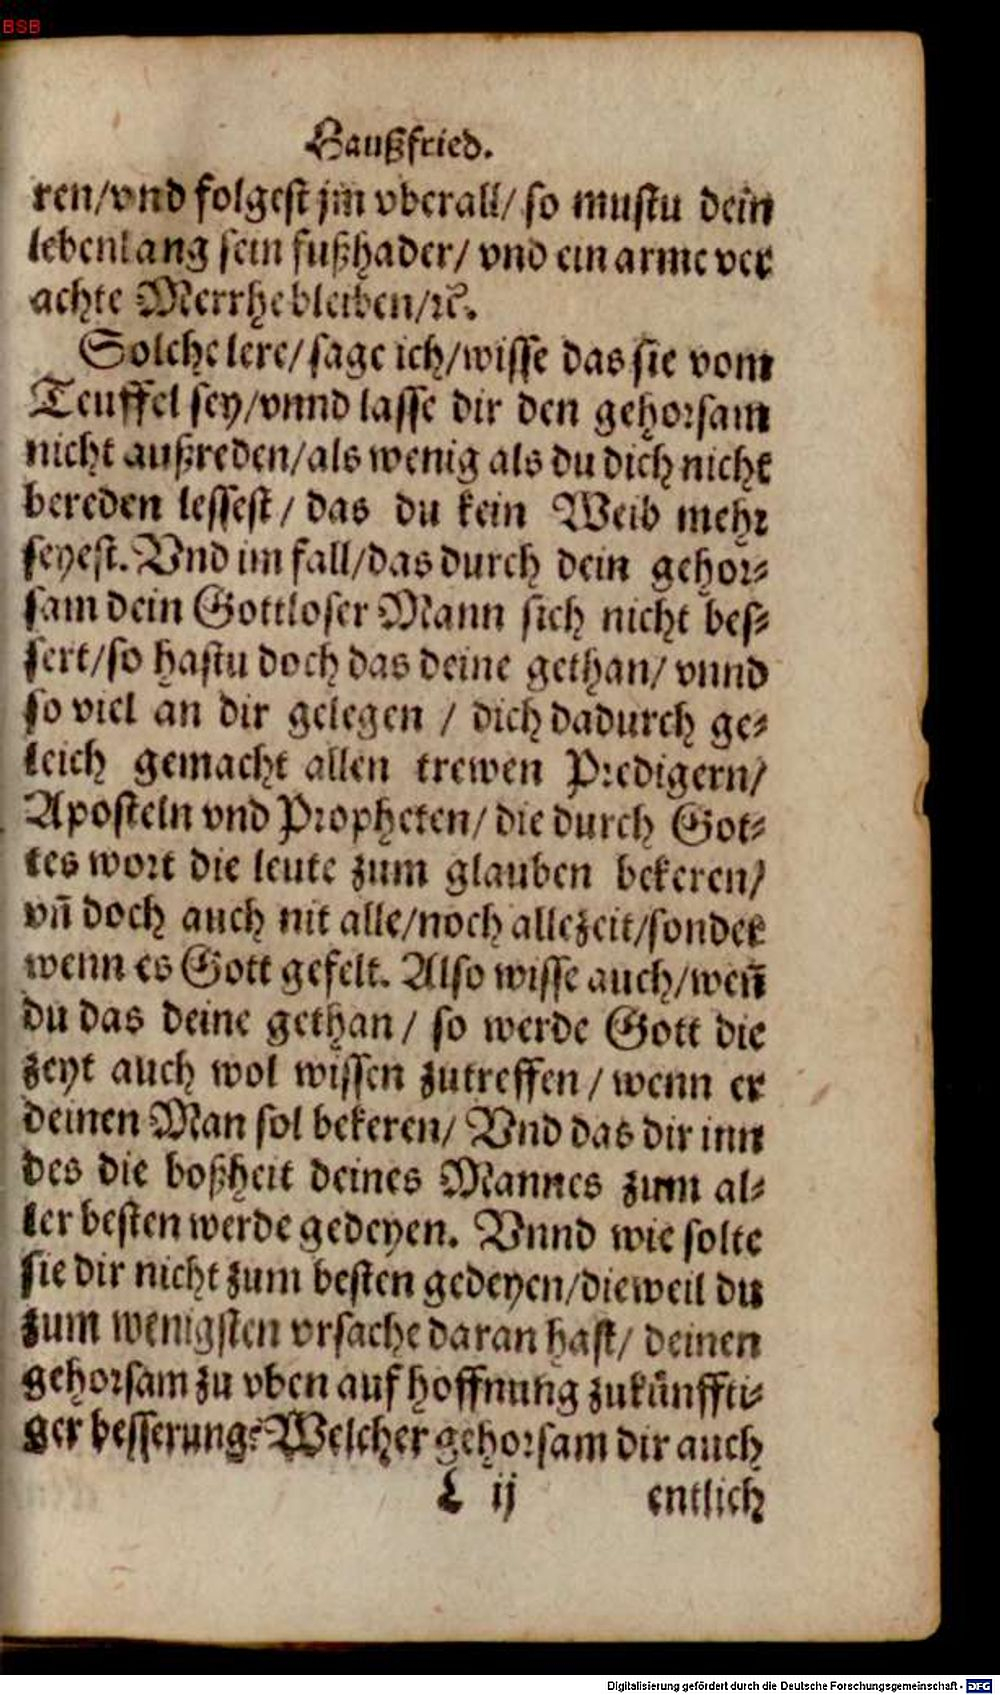 BSB
Haußfried.
ren/vnd folgest jm vberall/ so mustu dein
lebenlang sein fußhader/ vnd ein arme ver
achte Merrhe bleiben/ꝛc.
Solche lere/ sage ich/wisse das sie vom
Teuffel sey/vnnd lasse dir den gehorsam
nicht außreden/als wenig als du dich nicht
bereden lessest/ das du kein Weib mehr
seyest. Vnd im fall/das durch dein gehor⸗
sam dein Gottloser Mann sich nicht bes⸗
sert/so hastu doch das deine gethan/ vnnd
so viel an dir gelegen / dich dadurch ge⸗
leich gemacht allen trewen Predigern/
Aposteln vnd Propheten/ die durch Got⸗
tes wort die leute zum glauben bekeren/
vn̄ doch auch nit alle/noch allezeit/sonder
wenn es Gott gefelt. Also wisse auch/wen̄
du das deine gethan/ so werde Gott die
zeyt auch wol wissen zutreffen / wenn er
deinen Man sol bekeren/ Vnd das dir inn
des die boßheit deines Mannes zum al⸗
ler besten werde gedeyen. Vnnd wie solte
sie dir nicht zum besten gedeyen/dieweil du
zum wenigsten vrsache daran hast/ deinen
gehorsam zu vben auf hoffnung zukünffti⸗
ger besserung? Welcher gehorsam dir auch
L ij entlich
Digitalisierung gefördert durch die Deutsche Forschungsgemeinschaft - DFG